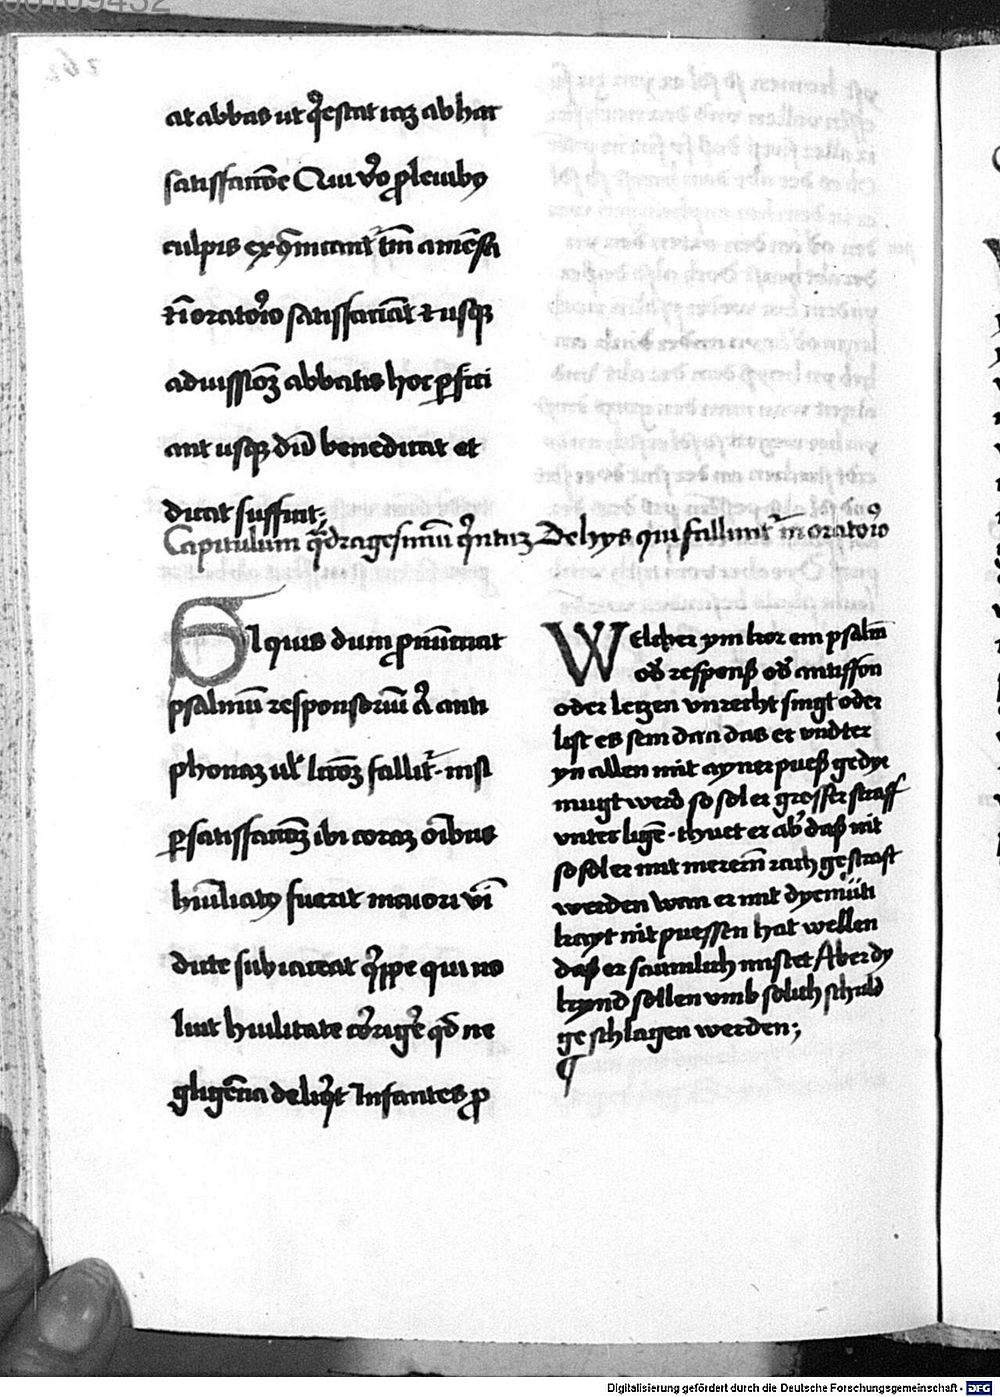 at abbas ut q̄escat itaȝ ab hac
satisfactiōe Qui v̓o ꝓ leuibꝰ
culpis exꝯmunicant᷑ tm̄ a mēsa
ī oratorio satisfaciāt ⁊ usqꝫ
ad iussionē abbatis hoc ꝑfici
ant usqꝫ dū benedicat et
dicat sufficit;
Capitulum q̈dragesimū q̄ntuȝ De hys qui fallunt᷑ in oratorio
SI quis dum ꝓnūciat
psalmū responsoriū a᷑ anti
phonaȝ ul̓ lc̄oȝ fallit᷑ · nisi
ꝑ satisfactiōȝ ibi coraȝ oībus
hūiliatꝰ fuerit maiori vī
dicte subiaceat q̓ppe qui no
luit hūilitate cor̓rige̓ qd̓ ne
gligēcia deliq̓t Infantes ꝓ
WElcher ym kor em psalm
od̓ respons od̓ antiffon
oder letzen vnrecht singt oder
list es sein dan das er vndter
yn allen mit ayner pueß gedye
mugt werd so sol er grosser straff
vnter ligē · thuet er ab̓ daß nit
so sol er mit mererm rach gestraft
werden wan er mit dyemüti
kayt nit puessen hat wellen
daß er saumlich mistet Aber dy
kynd sollen vmb solich schuld
geschlagen werden;
¶
Digitalisierung gefördert durch die Deutsche Forschungsgemeinschaft - DFG